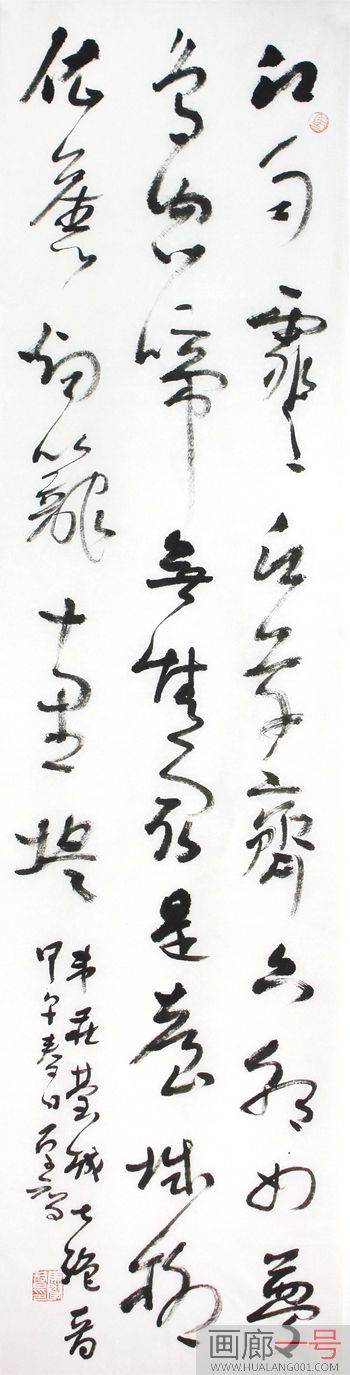 江雨霏霏江草齊六朝如夢
鳥空啼無情最是臺城柳
依舊烟籠十里堤
韋莊臺城七絶
甲午春日
画廊一号
WWW.HUALANG001.COM